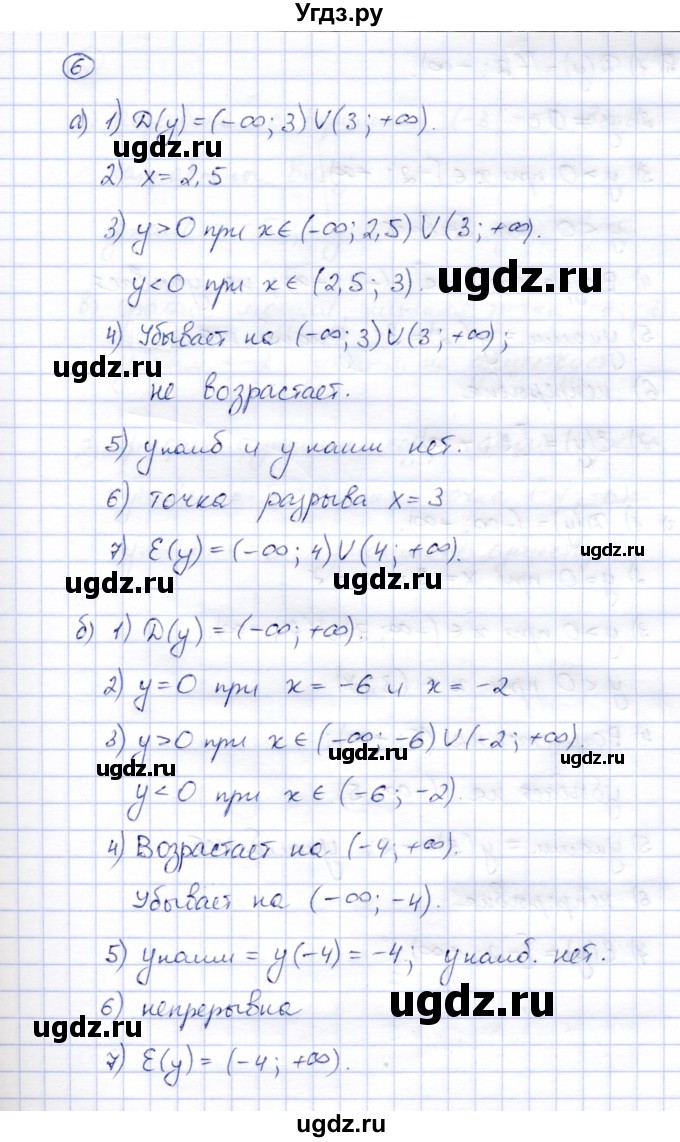 Угдз.ру
6
а) 1) D(y) = (-∞; 3) ∪ (3; +∞).
2) x = 2,5
3) y>0 при x∈(-∞; 2,5) ∪ (3; +∞).
y<0 при x∈(2,5; 3).
ugdz.ru
4) Убывает на (-∞; 3)∪(3; +∞);
ugdz.ru
не возрастает.
5) yнаиб и yнаим нет.
6) точка разрыва x=3
7) E(y) = (-∞; 4)∪(4; +∞).
ugdz.ru
ugdz.ru
ugdz.ru
б) 1) D(y) = (-∞; +∞).
2) y=0 при x = -6 и x = -2
3) y>0 при x∈(-∞; -6)∪(-2; +∞).
ugdz.ru
ugdz.ru
ugdz.ru
y<0 при x∈(-6; -2).
4) Возрастает на (-4; +∞).
Убывает на (-∞; -4).
5) yнаим = y(-4) = -4; yнаиб. нет.
6) непрерывна
ugdz.ru
ugdz.ru
7) E(y) = (-4; +∞).
ugdz.ru